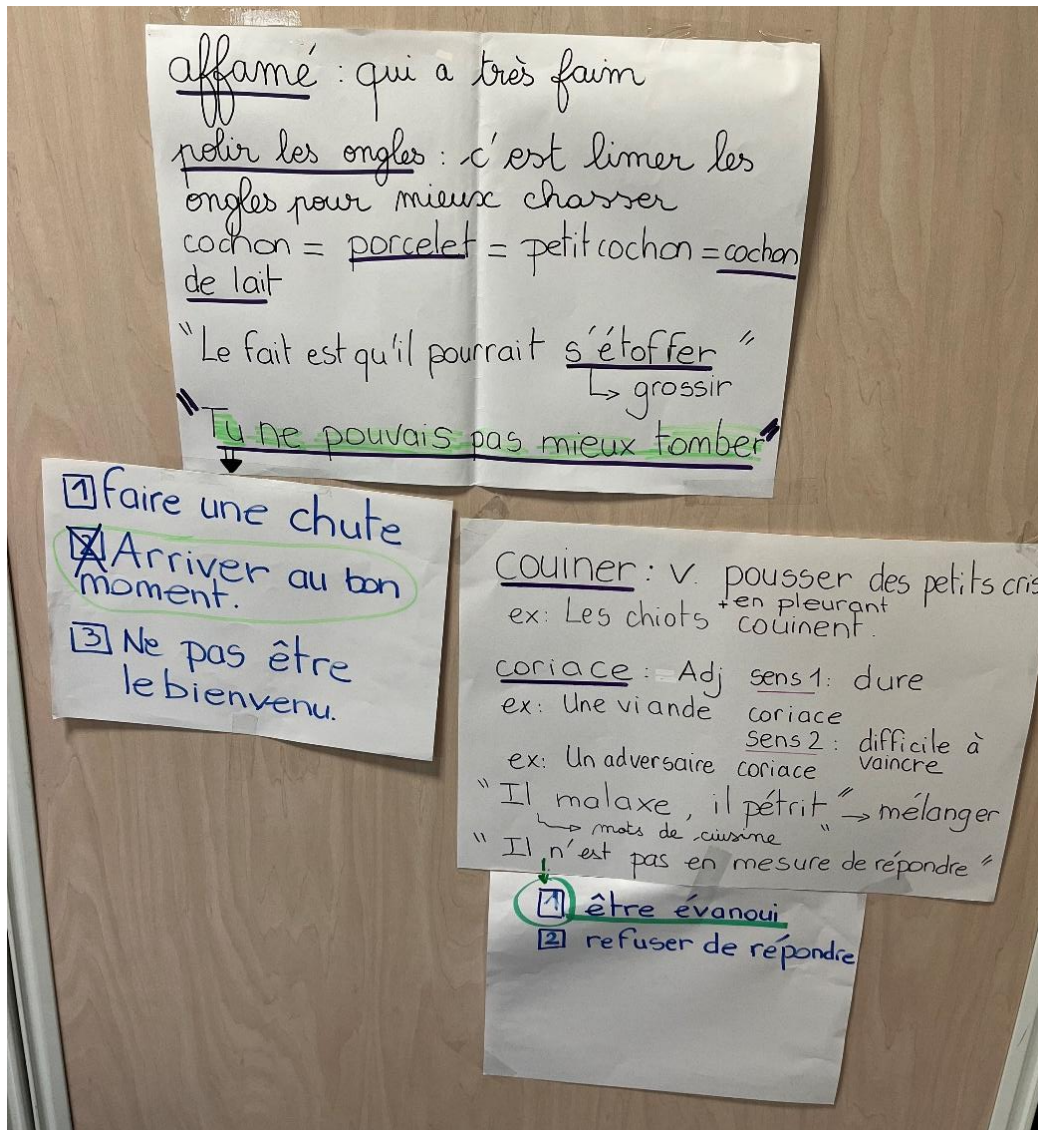 affamé : qui a très faim
polir les ongles : c'est limer les
ongles pour mieux chasser
cochon = porcelet = petit cochon = cochon
de lait
"Le fait est qu'il pourrait s'étoffer"
↳ grossir
"Tu ne pouvais pas mieux tomber"
1 faire une chute
2 Arriver au bon
moment.
3 Ne pas être
le bienvenu.
couiner : v. pousser des petits cris
+ en pleurant
ex: Les chiots couinent.
coriace : Adj sens 1 : dure
ex: Une viande coriace
sens 2 : difficile à
vaincre
ex: Un adversaire coriace
"Il malaxe, il pétrit" → mélanger
↳ mots de cuisine
"Il n'est pas en mesure de répondre"
1 être évanoui
2 refuser de répondre